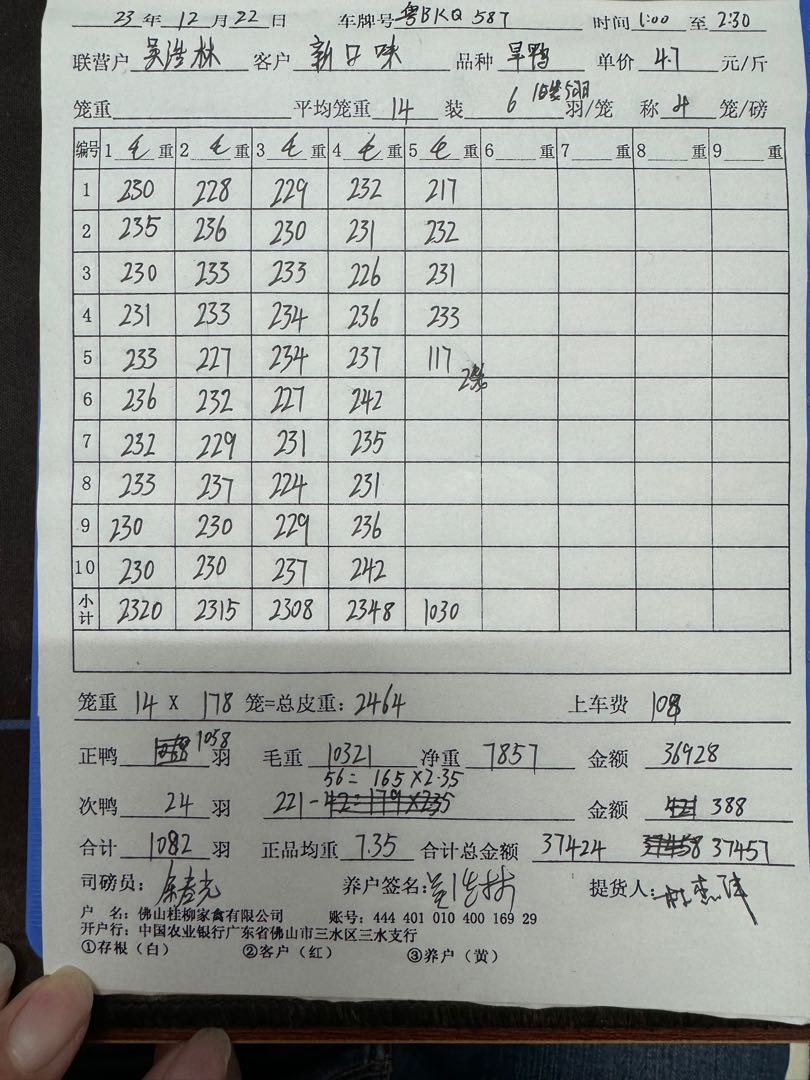 23 年 12 月 22 日 车牌号 粤BKQ 587 时间 1:00 至 2:30
联营户 吴浩林 客户 新口味 品种 旱鸭 单价 4.7 元/斤
笼重 平均笼重 14 装 6 羽/笼 称 4 笼/磅
编号 1 毛 重 2 毛 重 3 毛 重 4 毛 重 5 毛 重 6 重 7 重 8 重 9 重
1 230 228 229 232 217
2 235 236 230 231 232
3 230 233 233 226 231
4 231 233 234 236 233
5 233 227 234 237 117
6 236 232 227 242
7 232 229 231 235
8 233 237 224 231
9 230 230 229 236
10 230 230 237 242
小计 2320 2315 2308 2348 1030
笼重 14 X 178 笼=总皮重: 2464 上车费 108
正鸭 1058 羽 毛重 10321 净重 7857 金额 36928
56= 165×2.35
次鸭 24 羽 221- 42=179×235 金额 421 388
合计 1082 羽 正品均重 7.35 合计总金额 37424 37458 37457
司磅员: 养户签名: 提货人:
户 名: 佛山桂柳家禽有限公司 账号: 444 401 010 400 169 29
开户行: 中国农业银行广东省佛山市三水区三水支行
①存根(白) ②客户(红) ③养户(黄)